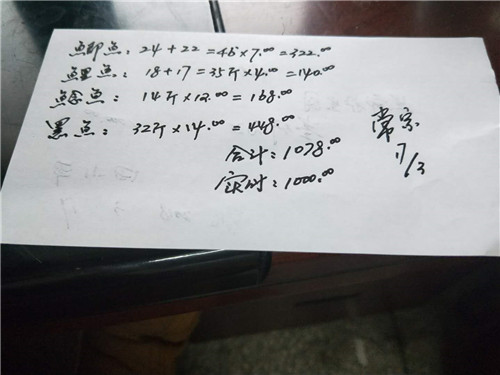 鲫鱼：24+22=46×7.00=322.00
鲤鱼：18+17=35斤×4.00=140.00
鲶鱼：14斤×12.00=168.00
黑鱼：32斤×14.00=448.00
合计：1078.00
实付：1000.00
常宗
17/3